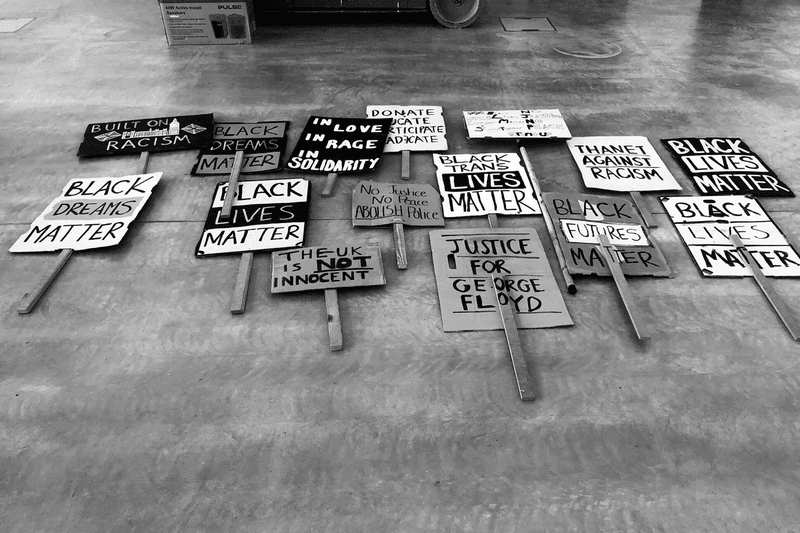 40W Active Install
Speakers
PULSE
BUILT ON
RACISM
BLACK
DREAMS
MATTER
IN LOVE
IN RAGE
IN SOLIDARITY
DONATE
EDUCATE
PARTICIPATE
THANET
AGAINST
RACISM
BLACK
LIVES
MATTER
BLACK
DREAMS
MATTER
BLACK
LIVES
MATTER
No Justice
No Peace
ABOLISH POLICE
BLACK
TRANS
LIVES
MATTER
BLACK
FUTURES
MATTER
BLACK
LIVES
MATTER
THE UK
IS NOT
INNOCENT
JUSTICE
FOR
GEORGE
FLOYD